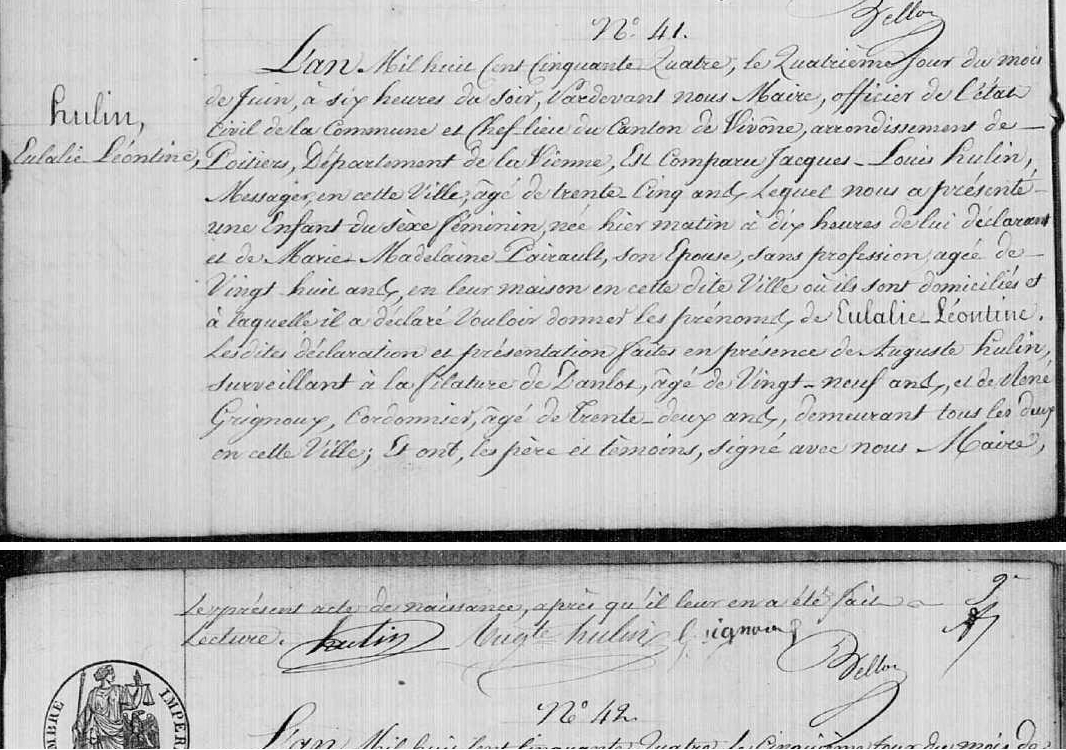 Belloy
N.° 41.
L'an Mil huit Cent Cinquante Quatre, le Quatrième Jour du mois
de Juin, à six heures du Soir, Pardevant nous Maire, officier de l'état
Civil de la Commune et Chef lieu du Canton de Vivône, arrondissement de
hulin,
Eulalie Léontine,
Poitiers, Département de la Vienne, Est Comparu Jacques-Louis hulin,
Messager, en cette Ville, âgé de trente-Cinq ans, Lequel nous a présenté
une Enfant du Sèxe féminin, née hier matin à dix heures de lui déclarant
et de Marie-Madelaine Poirault, son Epouse, sans profession, agée de
Vingt huit ans, en leur maison en cette dite Ville où ils sont domiciliés et
à laquelle il a déclaré Vouloir donner les prénoms, de Eulalie-Léontine.
Lesdites déclaration et présentation faites en présence de Auguste hulin,
surveillant à la filature de Danlot, âgé de Vingt-neuf ans, et de René
Grignoux, Cordonnier, âgé de Trente-deux ans, demeurant tous les deux
en cette Ville; Et ont, les père et témoins, signé avec nous Maire,
Le présent acte de naissance, après qu'il leur en a été fait
Lecture. hulin Augte hulin Grignoux
Belloy
TIMBRE IMPER
N.° 42.
L'an Mil huit Cent Cinquante Quatre, le Cinquième Jour du mois de